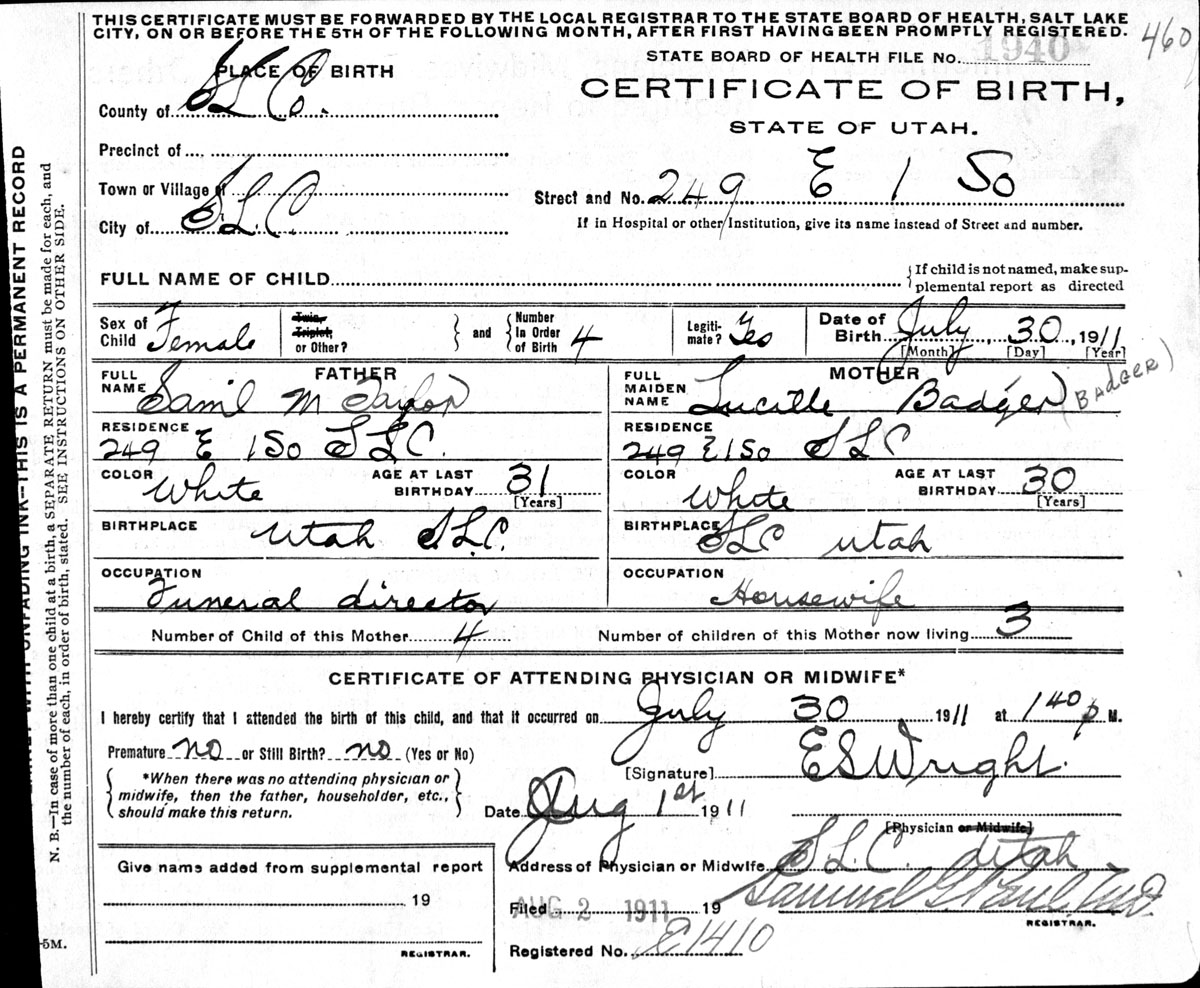 THIS CERTIFICATE MUST BE FORWARDED BY THE LOCAL REGISTRAR TO THE STATE BOARD OF HEALTH, SALT LAKE
CITY, ON OR BEFORE THE 5TH OF THE FOLLOWING MONTH, AFTER FIRST HAVING BEEN PROMPTLY REGISTERED.
460
STATE BOARD OF HEALTH FILE No. 1940
PLACE OF BIRTH
CERTIFICATE OF BIRTH,
County of S L Co.
STATE OF UTAH.
Precinct of
Town or Village of
Street and No. 249 E 1 So
City of S.L.C.
If in Hospital or other Institution, give its name instead of Street and number.
FULL NAME OF CHILD
If child is not named, make sup-
plemental report as directed
Sex of Child Female
Twin, Triplet, or Other?
and
Number In Order of Birth 4
Legiti-mate? Yes
Date of Birth July 30, 1911
[Month] [Day] [Year]
FATHER
FULL NAME Saml M Taylor
RESIDENCE
249 E 1 So S L C.
COLOR White
AGE AT LAST BIRTHDAY 31
[Years]
BIRTHPLACE
Utah S.L.C.
OCCUPATION
Funeral director
MOTHER
FULL MAIDEN NAME Lucille Badger (BADGER)
RESIDENCE
249 E 1 So S L C
COLOR White
AGE AT LAST BIRTHDAY 30
[Years]
BIRTHPLACE
SLC Utah
OCCUPATION
Housewife
Number of Child of this Mother 4
Number of children of this Mother now living 3
CERTIFICATE OF ATTENDING PHYSICIAN OR MIDWIFE*
I hereby certify that I attended the birth of this child, and that it occurred on July 30 1911 at 1 40 p M.
Premature no or Still Birth? no (Yes or No)
[Signature] E S Wright
*When there was no attending physician or
midwife, then the father, householder, etc.,
should make this return.
Date Aug 1st 1911
[Physician or Midwife]
Address of Physician or Midwife S L.C. Utah
Give name added from supplemental report
19
REGISTRAR.
Filed AUG 2 1911 19
Samuel G. Paul, M.D.
REGISTRAR.
Registered No. E1410
5M.
UNFADING INK—THIS IS A PERMANENT RECORD
N. B.—In case of more than one child at a birth, a SEPARATE RETURN must be made for each, and
the number of each, in order of birth, stated. SEE INSTRUCTIONS ON OTHER SIDE.